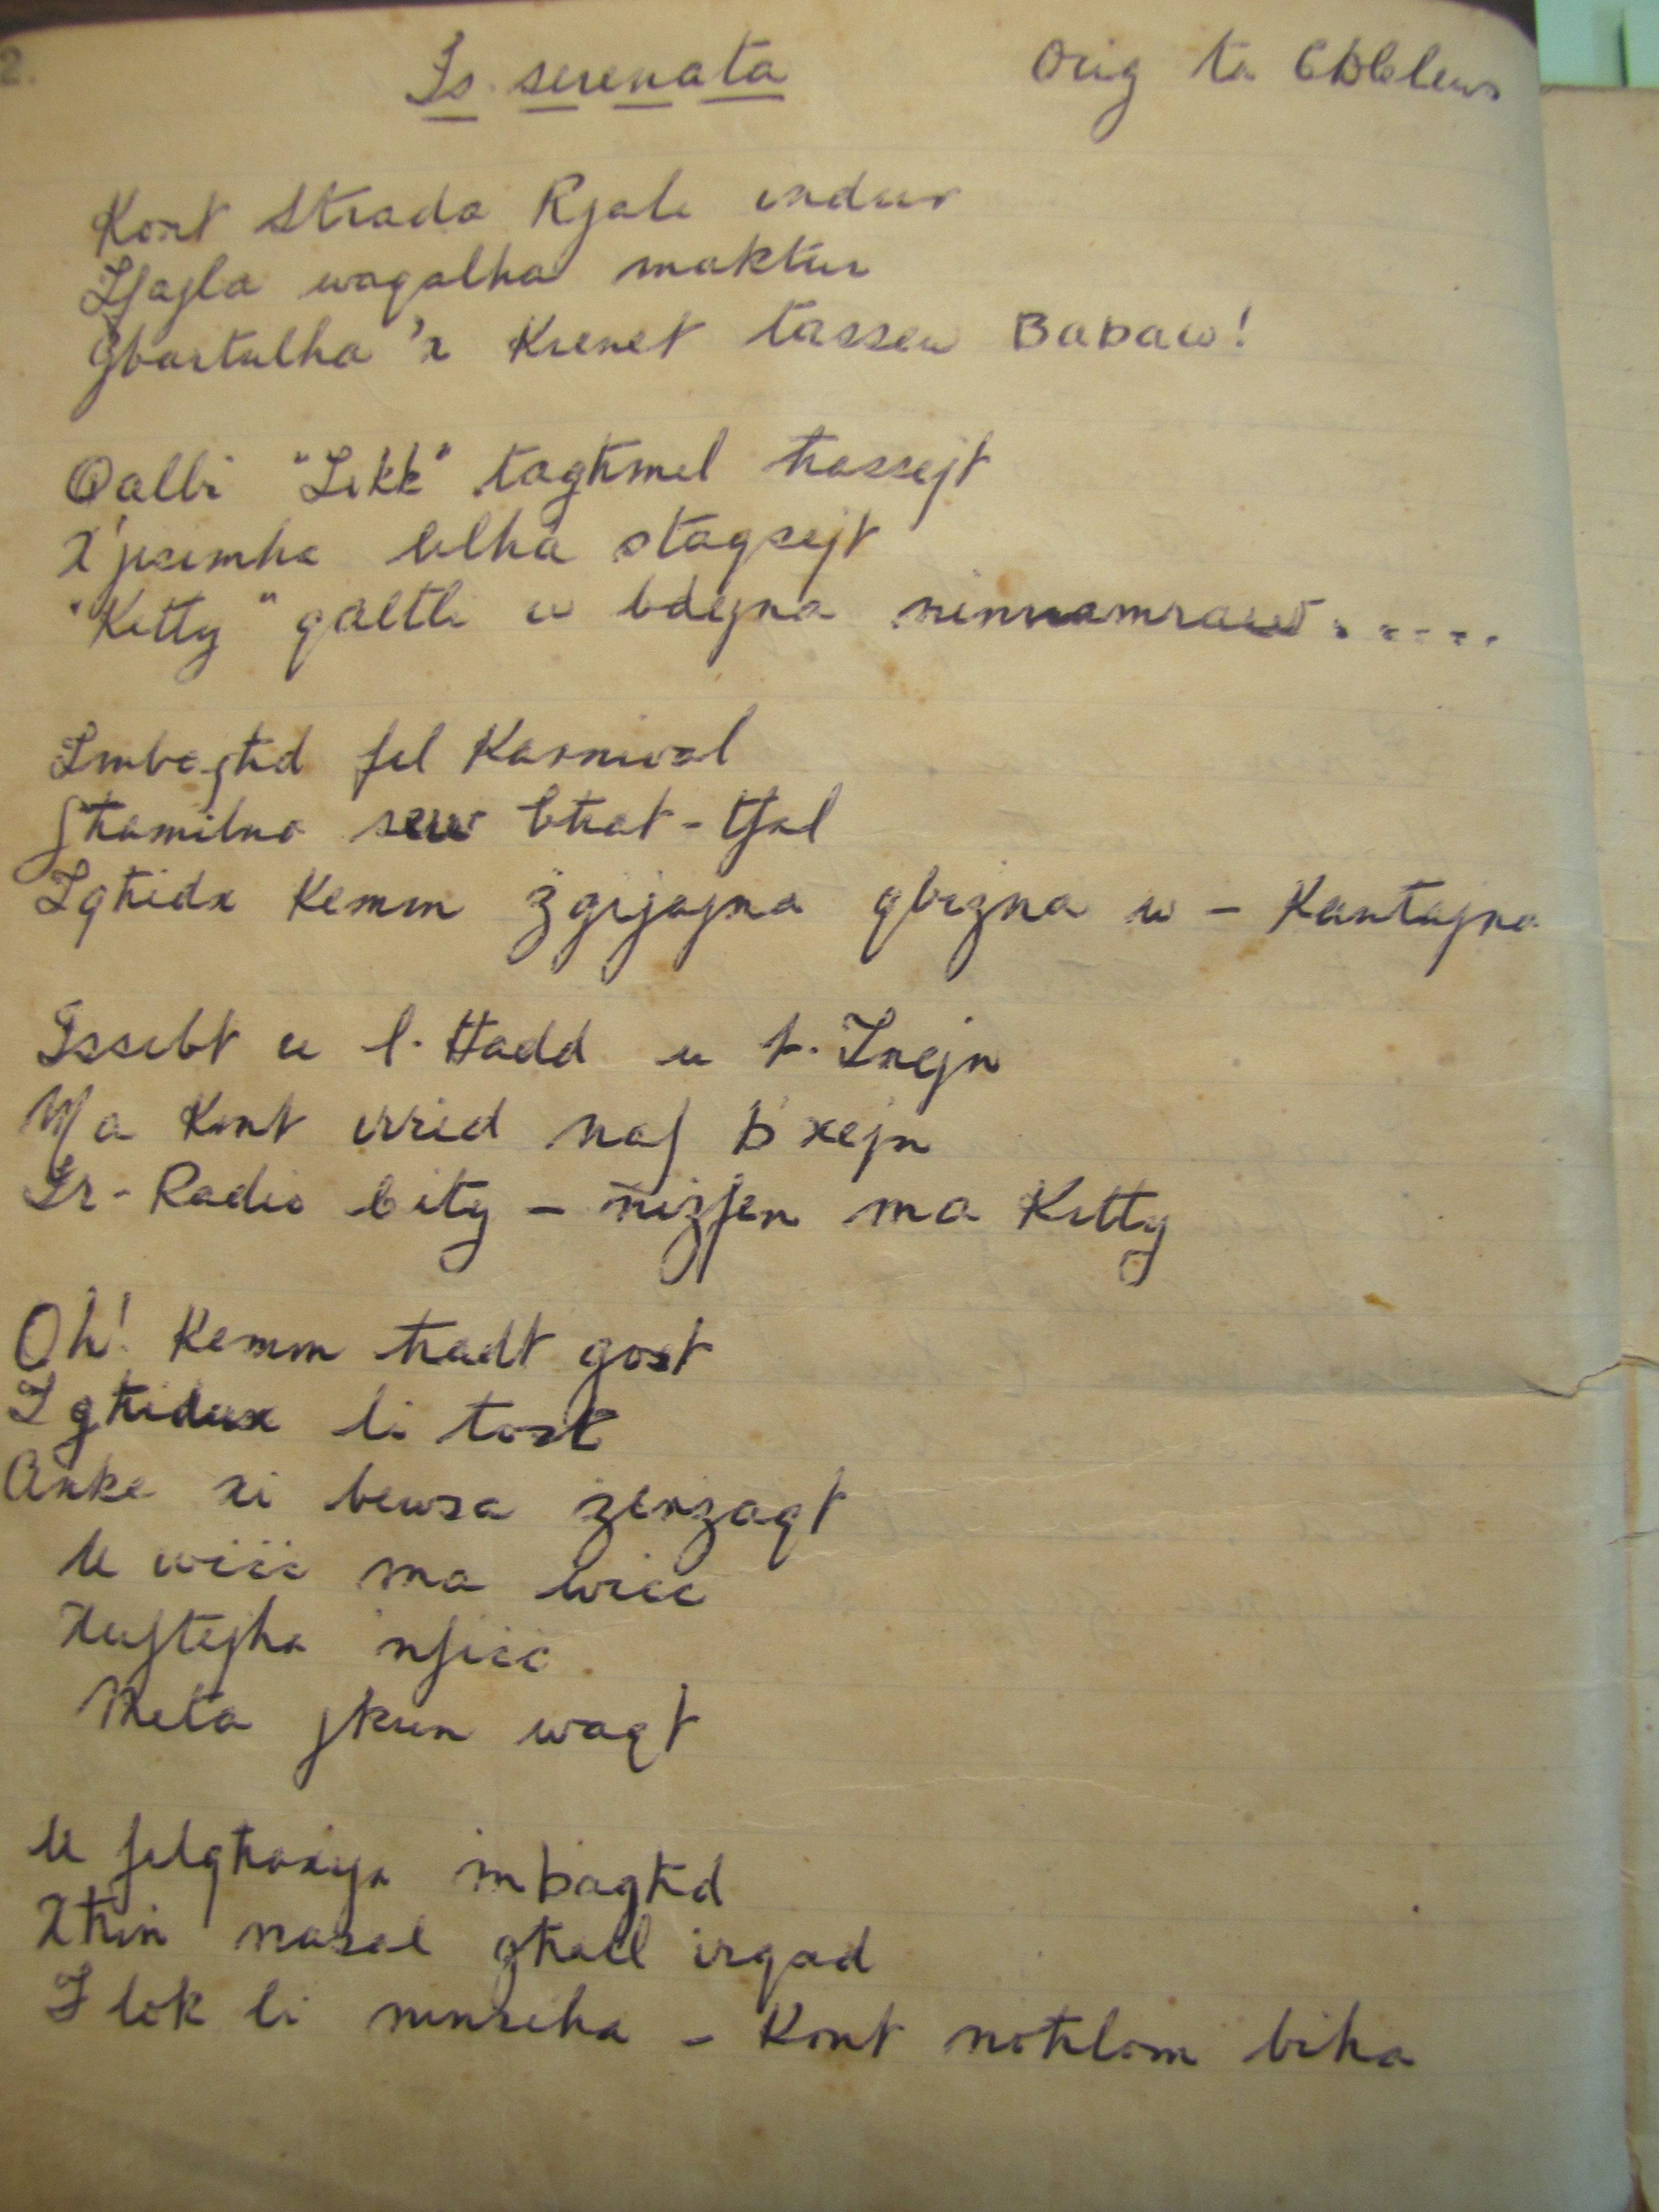 2.
Is. serenata Orig ta
Kont Strada Rjali indur
Tfajla waqalha maktur
Gbartulha 'x Krenet tassew BaBaw!
Qalbi "Likk" tagħmel ħassejt
X'jisimha lilha staqsejt
"Kitty" qaltli u bdejna ninnamraw.....
Imbagħd fel Karnival
Għamilna sew bħat-tfal
Igħidx Kemm żgiġajna qbiżna u - Kantajna
Issibt u l-Ħadd u t-Tnejn
Ma Kont irrid naf b'xejn
Ir-Radio City - niżfen ma Kitty
Oh! Kemm ħadt gost
Igħidux li tost
Anke xi bewsa żenżaqt
U wiċċ ma wiċċ
Xuftejha nfiċċ
Meta jkun waqt
U filgħaxija mbagħd
Xħin nasal għall irqad
Ilek li ninsiha - Kont noħlom biha